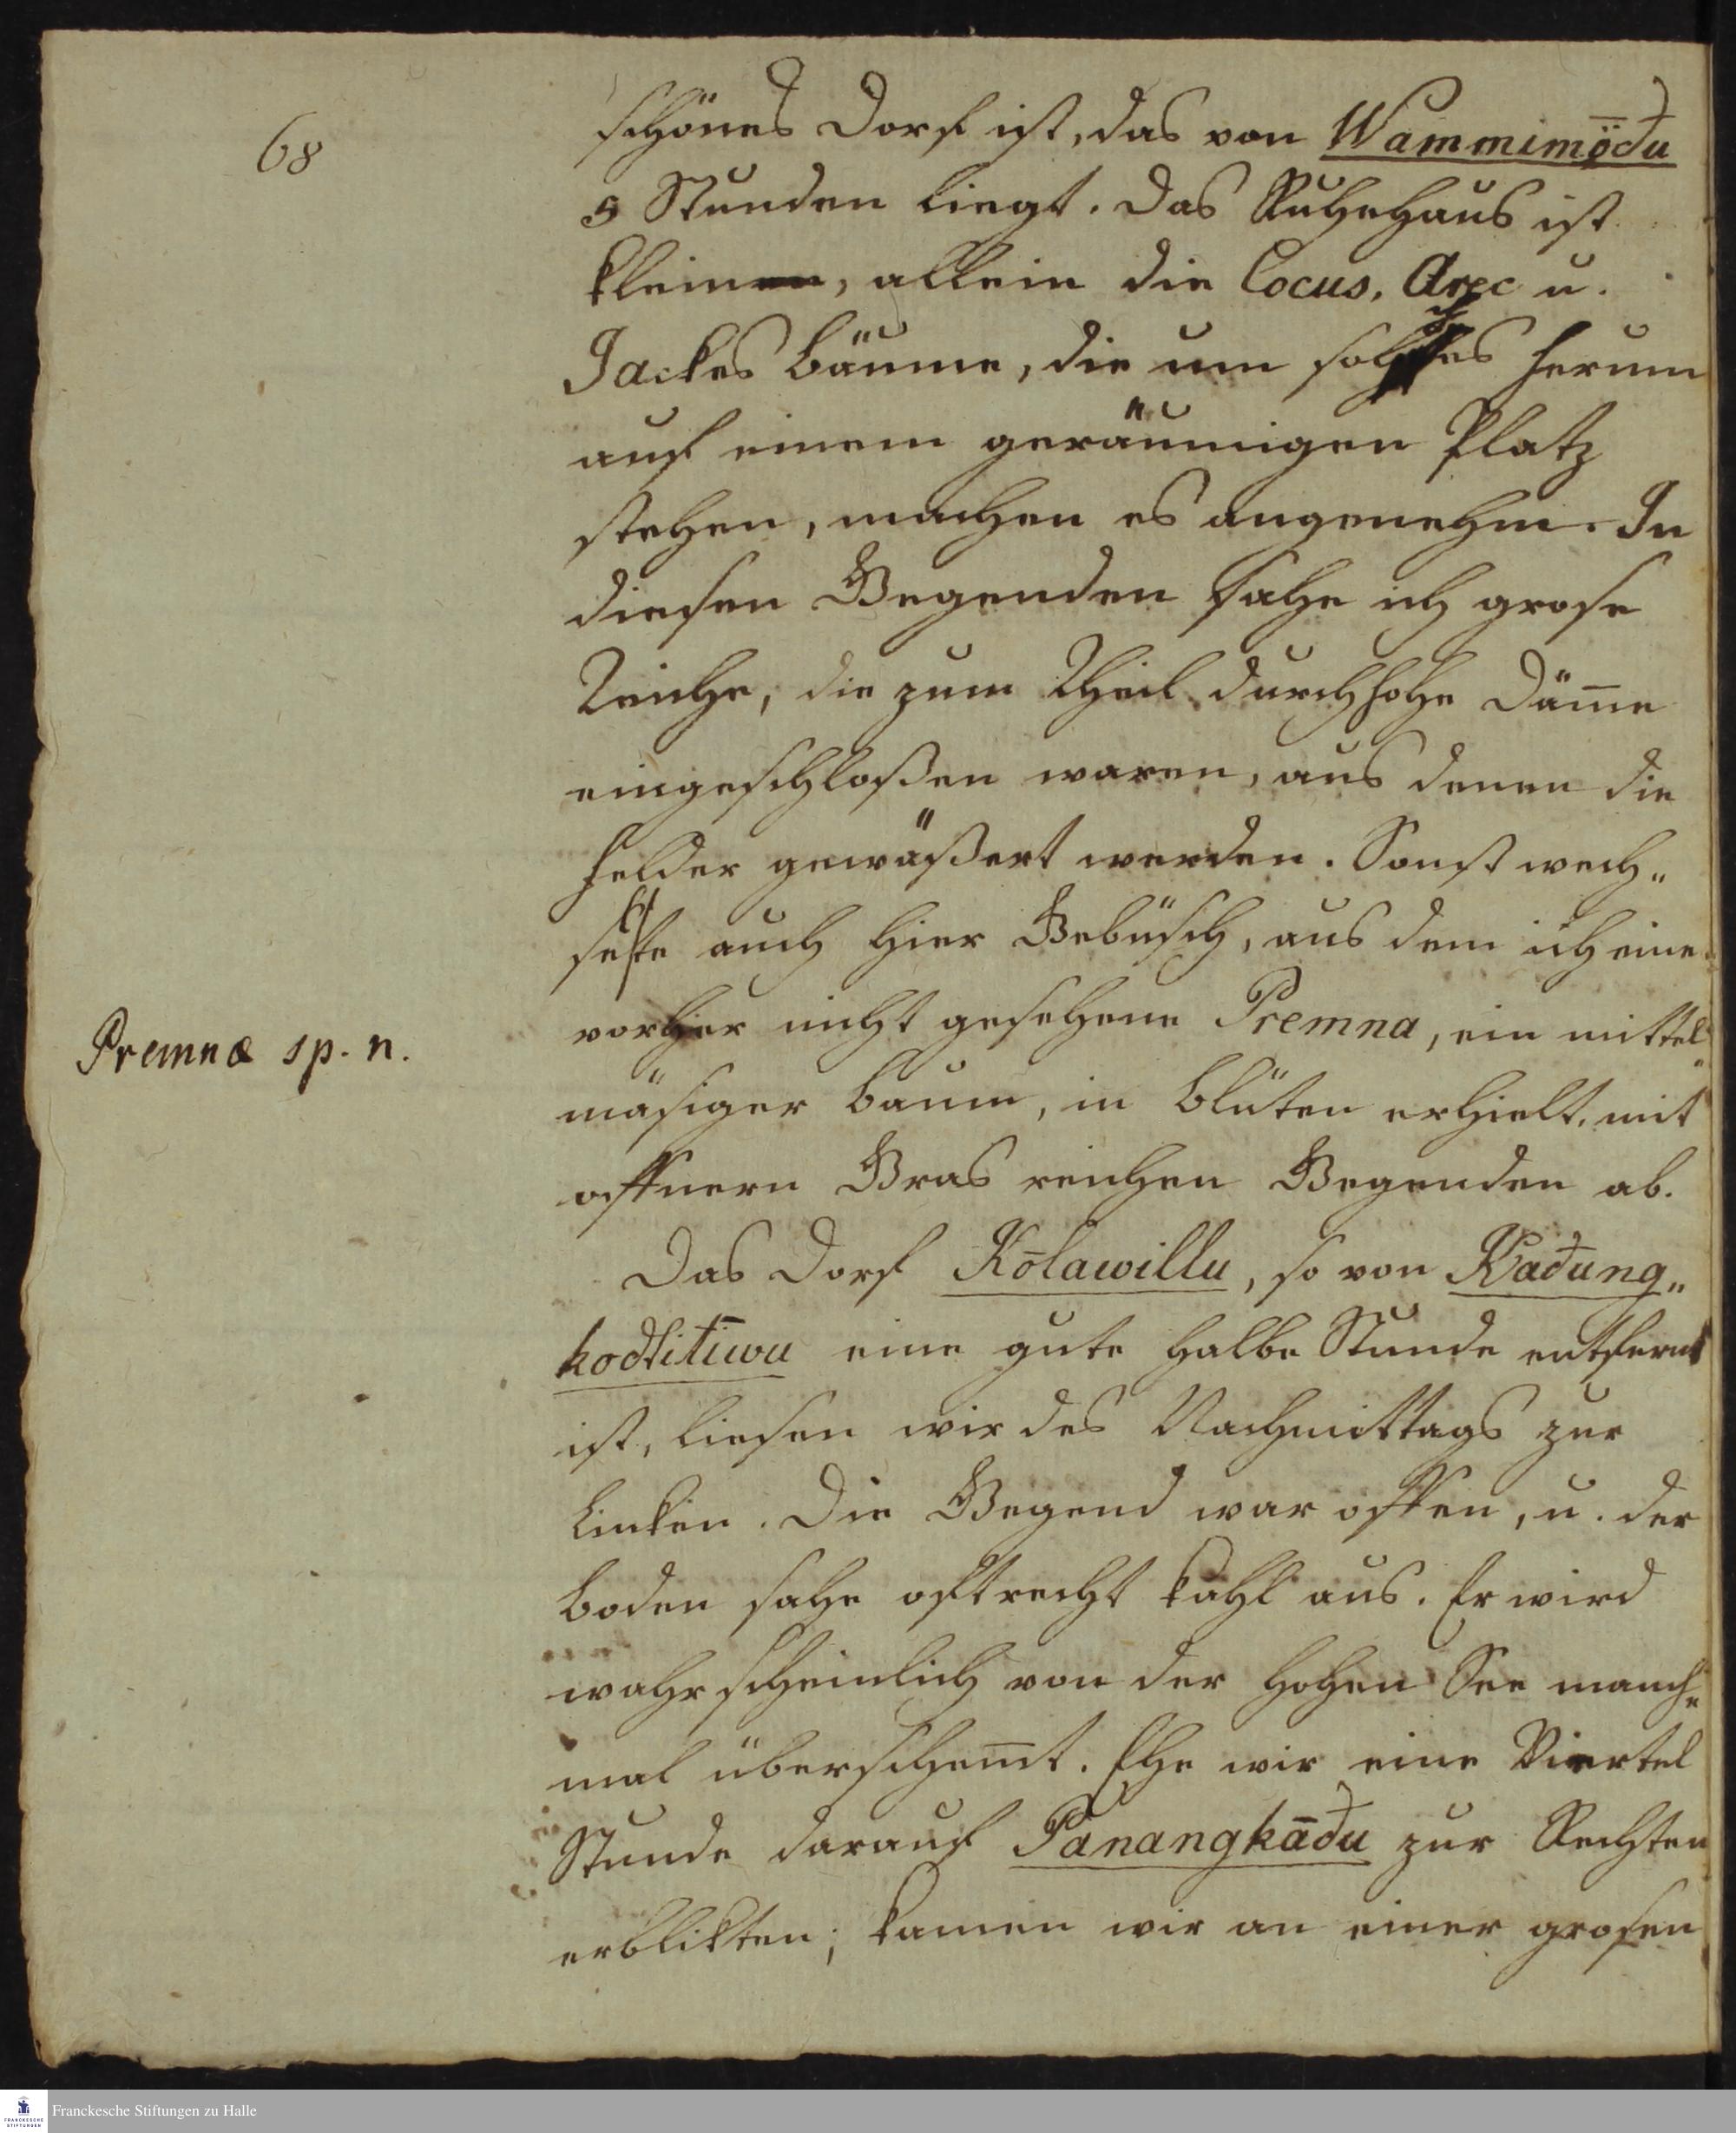 68
schönes Dorf ist, das von Wammimōđu
5 Stunden liegt. Das Ruhehaus ist
klein, allein die Cocus, Arec u.
Jackes bäume, die um solches herum
auf einem geräumigen Platz
stehen, machen es angenehm. In
diesen Gegenden sahe ich grose
Teiche, die zum Theil durch hohe Däm̅e
eingeschloßen waren, aus denen die
Felder gewäßert werden. Sonst wech„
selte auch hier Gebüsch, aus dem ich eine
vorher nicht gesehene Premna, ein mittel„
Premnæ sp. n.
mäsiger Baum, in Blüten erhielt, mit
offnern Gras reichen Gegenden ab.
Das Dorf Kōlawillu, so von Kađung„
kođlitīwu eine gute halbe Stunde entfernt
ist, liesen wir des Nachmittags zur
Linken. Die Gegend war offen, u. der
Boden sahe oft recht kahl aus. Er wird
wahrscheinlich von der hohen See manch„
mal überschem̅t. Ehe wir eine Viertel
Stunde darauf Panangkāđu zur Rechten
erblikten; kamen wir an einer grosen
Franckesche Stiftungen zu Halle
FRANCKESCHE
STIFTUNGEN